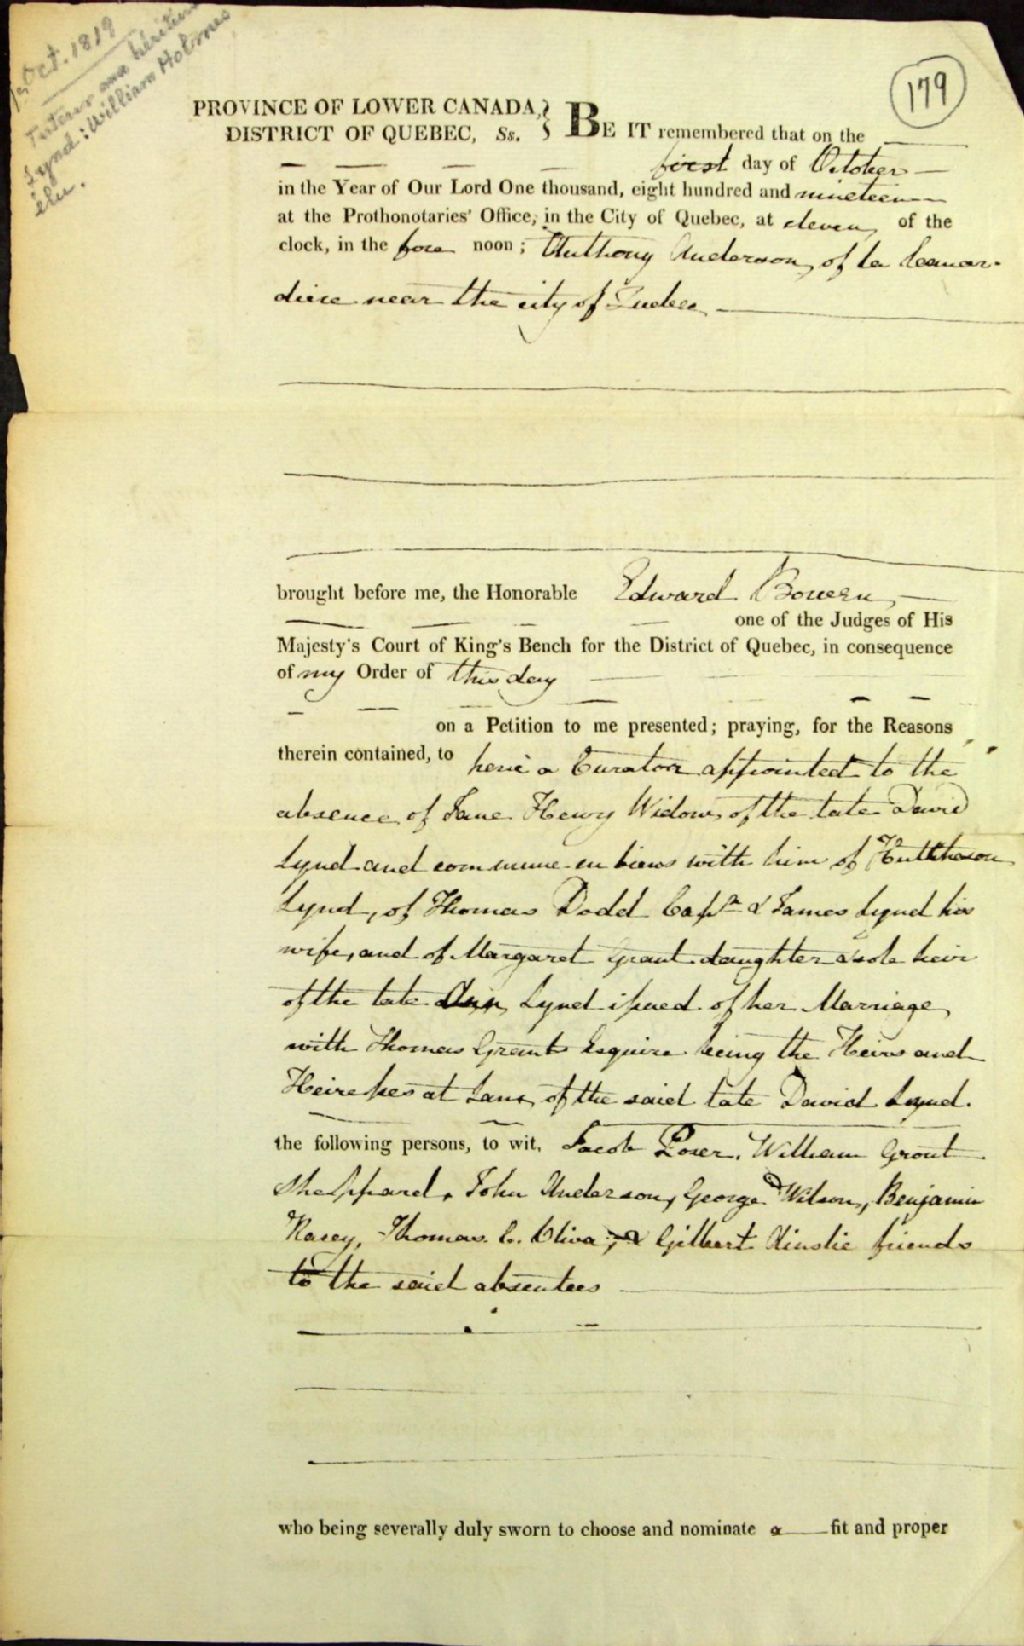 1er Oct. 1819
Tuteur aux héritiers
Lynd: William Holmes
élu.
179
PROVINCE OF LOWER CANADA,
DISTRICT OF QUEBEC, Ss.
BE IT remembered that on the
first day of October
in the Year of Our Lord One thousand, eight hundred and nineteen
at the Prothonotaries' Office, in the City of Quebec, at eleven of the
clock, in the fore noon; Anthony Anderson, of la Canar-
diere near the city of Quebec
brought before me, the Honorable Edward Bowen,
one of the Judges of His
Majesty's Court of King's Bench for the District of Quebec, in consequence
of my Order of this day
on a Petition to me presented; praying, for the Reasons
therein contained, to have a Curator appointed to the
absence of Jane Henry Widow of the late David
Lynd and commune en biens with him of
Lynd, of Thomas Dodd Capn & James Lynd his
wife, and of Margaret Grant daughter & sole heir
of the late Ann Lynd issued of her Marriage
with Thomas Grant Esquire being the Heirs and
Heiresses at Law, of the said late David Lynd.
the following persons, to wit, Jacob Pozer, William Grant
Sheppard, John Anderson, George Wilson, Benjamin
Thomas C. Oliva, & Gilbert Ainslie friends
to the said absentees
who being severally duly sworn to choose and nominate a fit and proper